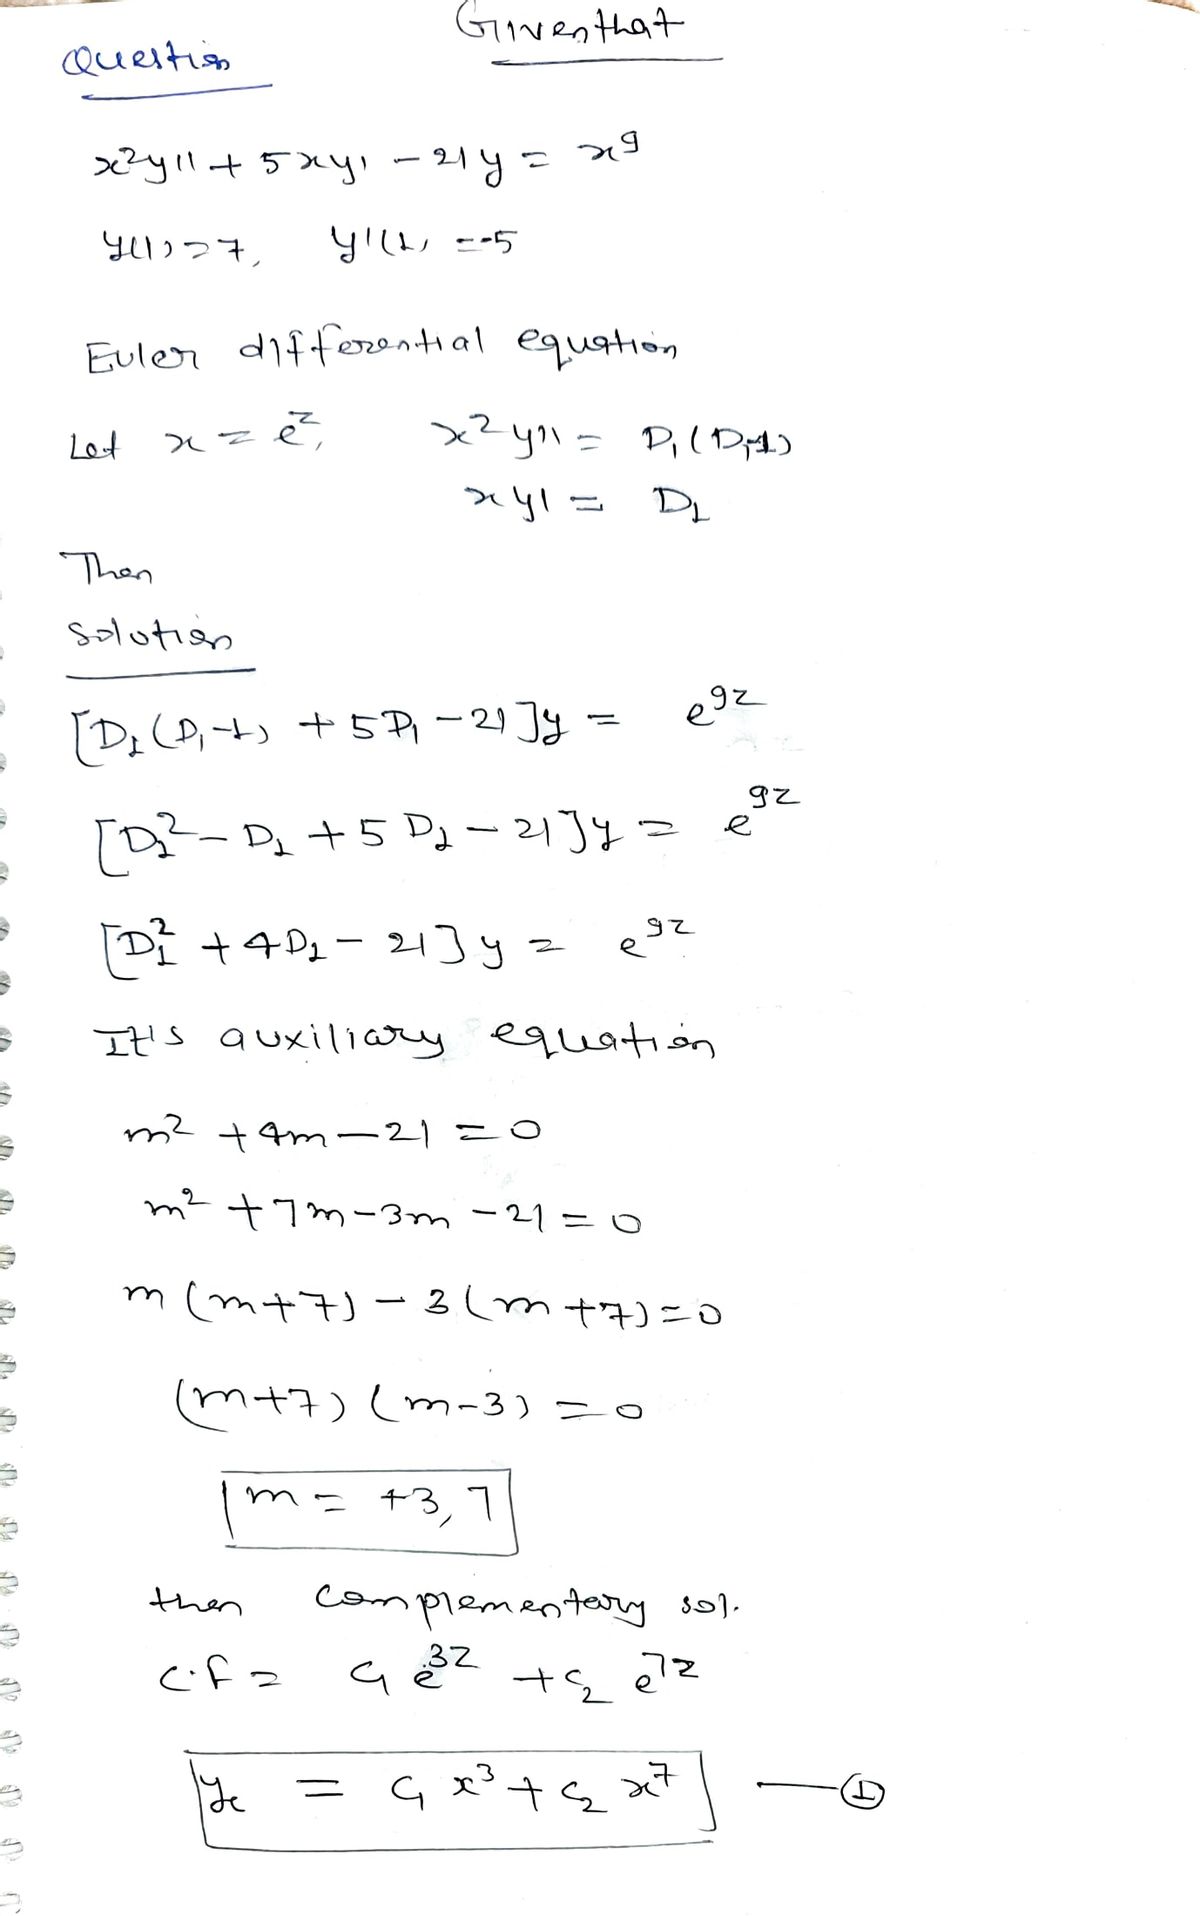 Given that
Question
x²y'' + 5xy' - 21y = x⁹
y(1) = 7, y'(1) = -5
Euler differential equation
Let x = e^z, x²y'' = D₁(D₁-1)
xy' = D₁
Then
Solution
[D₁(D₁-1) + 5D₁ - 21]y = e^9z
[D₁² - D₁ + 5D₁ - 21]y = e^9z
[D₁² + 4D₁ - 21]y = e^9z
It's auxiliary equation
m² + 4m - 21 = 0
m² + 7m - 3m - 21 = 0
m(m+7) - 3(m+7) = 0
(m+7)(m-3) = 0
m = +3, 7
then complementary sol.
C.f = C₁ e^3z + C₂ e^7z
y_c = C₁ x³ + C₂ x⁷ — ①